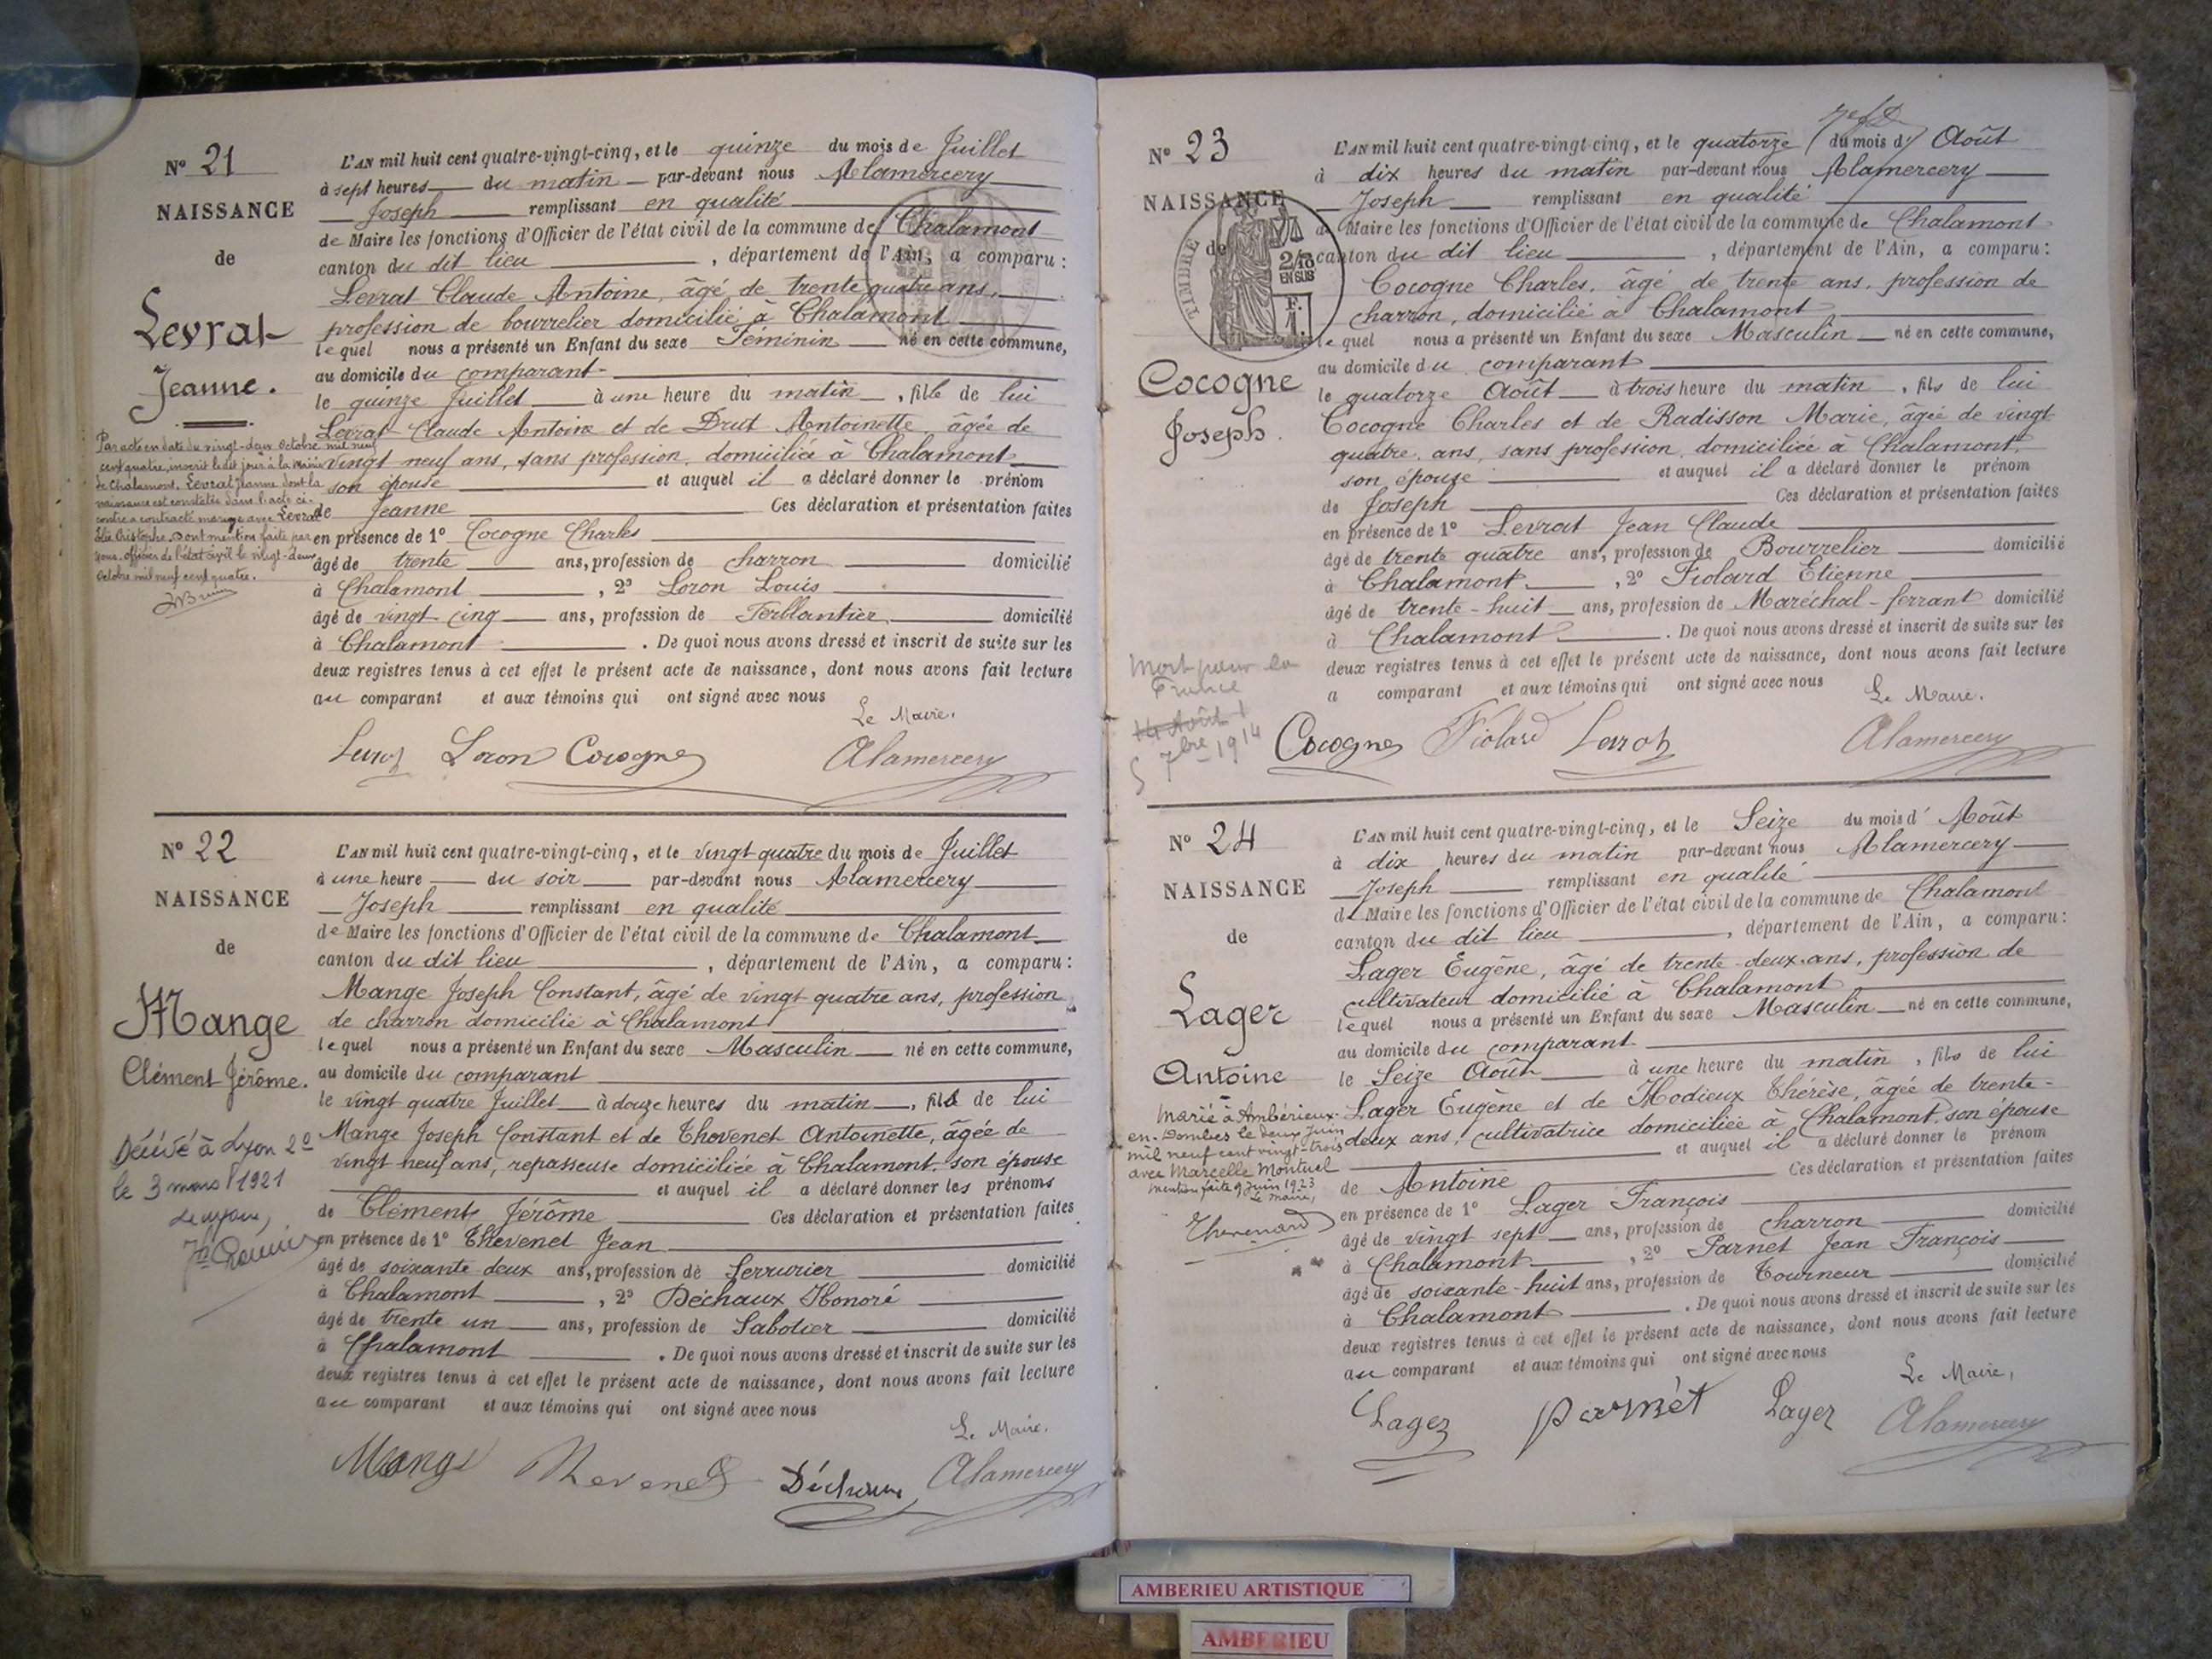 N° 21
NAISSANCE
de
Levrat
Jeanne.
Par acte en date du vingt-deux octobre mil neuf
cent quatre, inscrit le dit jour à la mairie
de Chalamont, Levrat Jeanne dont la
naissance est constatée dans l'acte ci-
contre a contracté mariage avec Levrat
Elie Christophe. Dont mention faite par
nous, officier de l'état civil le vingt-deux
octobre mil neuf cent quatre.
L'AN mil huit cent quatre-vingt-cinq, et le quinze du mois de Juillet
à sept heures du matin par-devant nous Alamercery
Joseph remplissant en qualité
de Maire les fonctions d'Officier de l'état civil de la commune de Chalamont
canton du dit lieu , département de l'Ain, a comparu :
Levrat Claude Antoine, âgé de trente quatre ans,
profession de bourrelier domicilié à Chalamont
lequel nous a présenté un Enfant du sexe Féminin né en cette commune,
au domicile du comparant
le quinze Juillet à une heure du matin , fille de lui
Levrat Claude Antoine et de Drut Antoinette, âgée de
vingt neuf ans, sans profession, domiciliée à Chalamont
son épouse et auquel il a déclaré donner le prénom
de Jeanne Ces déclaration et présentation faites
en présence de 1° Cocogne Charles
âgé de trente ans, profession de charron domicilié
à Chalamont , 2° Loron Louis
âgé de vingt cinq ans, profession de Ferblantier domicilié
à Chalamont . De quoi nous avons dressé et inscrit de suite sur les
deux registres tenus à cet effet le présent acte de naissance, dont nous avons fait lecture
au comparant et aux témoins qui ont signé avec nous
Le Maire.
Levrat Loron Cocogne Alamercery
N° 22
NAISSANCE
de
Mange
Clément Jérôme.
Décédé à Lyon 2e
le 3 mars 1921
L'AN mil huit cent quatre-vingt-cinq, et le vingt quatre du mois de Juillet
à une heure du soir par-devant nous Alamercery
Joseph remplissant en qualité
de Maire les fonctions d'Officier de l'état civil de la commune de Chalamont
canton du dit lieu , département de l'Ain, a comparu :
Mange Joseph Constant, âgé de vingt quatre ans, profession
de charron domicilié à Chalamont
lequel nous a présenté un Enfant du sexe Masculin né en cette commune,
au domicile du comparant
le vingt quatre Juillet à douze heures du matin , fils de lui
Mange Joseph Constant et de Thevenet Antoinette, âgée de
vingt neuf ans, repasseuse domiciliée à Chalamont, son épouse
et auquel il a déclaré donner les prénoms
de Clément Jérôme Ces déclaration et présentation faites
en présence de 1° Thevenet Jean
âgé de soixante deux ans, profession de Serrurier domicilié
à Chalamont , 2° Déchaux Honoré
âgé de trente un ans, profession de Sabotier domicilié
à Chalamont . De quoi nous avons dressé et inscrit de suite sur les
deux registres tenus à cet effet le présent acte de naissance, dont nous avons fait lecture
au comparant et aux témoins qui ont signé avec nous
Le Maire.
Mange Thevenet Déchaux Alamercery
N° 23
NAISSANCE
de
TIMBRE
2/10
EN SUS
F.
1.
Cocogne
Joseph.
Mort pour la
France
14 Août
5 7bre 1914
L'AN mil huit cent quatre-vingt-cinq, et le quatorze du mois d' Août
à dix heures du matin par-devant nous Alamercery
Joseph remplissant en qualité
de Maire les fonctions d'Officier de l'état civil de la commune de Chalamont
canton du dit lieu , département de l'Ain, a comparu :
Cocogne Charles, âgé de trente ans, profession de
charron, domicilié à Chalamont
lequel nous a présenté un Enfant du sexe Masculin né en cette commune,
au domicile du comparant
le quatorze Août à trois heure du matin , fils de lui
Cocogne Charles et de Radisson Marie, âgée de vingt
quatre ans, sans profession, domiciliée à Chalamont,
son épouse et auquel il a déclaré donner le prénom
de Joseph Ces déclaration et présentation faites
en présence de 1° Levrat Jean Claude
âgé de trente quatre ans, profession de Bourrelier domicilié
à Chalamont , 2° Fiolard Etienne
âgé de trente-huit ans, profession de Maréchal-ferrant domicilié
à Chalamont . De quoi nous avons dressé et inscrit de suite sur les
deux registres tenus à cet effet le présent acte de naissance, dont nous avons fait lecture
a comparant et aux témoins qui ont signé avec nous
Le Maire.
Cocogne Fiolard Levrat Alamercery
N° 24
NAISSANCE
de
Lager
Antoine
Marié à Ambérieux-
en-Dombes le deux Juin
mil neuf cent vingt-trois
avec Marcelle Montuel
mention faite 9 Juin 1923
Le maire,
Thevenard
L'AN mil huit cent quatre-vingt-cinq, et le Seize du mois d' Août
à dix heures du matin par-devant nous Alamercery
Joseph remplissant en qualité
de Maire les fonctions d'Officier de l'état civil de la commune de Chalamont
canton du dit lieu , département de l'Ain, a comparu :
Lager Eugène, âgé de trente-deux ans, profession de
cultivateur domicilié à Chalamont
lequel nous a présenté un Enfant du sexe Masculin né en cette commune,
au domicile du comparant
le Seize Août à une heure du matin , fils de lui
Lager Eugène et de Hodieux Thérèse, âgée de trente-
deux ans, cultivatrice domiciliée à Chalamont, son épouse
et auquel il a déclaré donner le prénom
de Antoine Ces déclaration et présentation faites
en présence de 1° Lager François
âgé de vingt sept ans, profession de charron domicilié
à Chalamont , 2° Parnet Jean François
âgé de soixante-huit ans, profession de Tourneur domicilié
à Chalamont . De quoi nous avons dressé et inscrit de suite sur les
deux registres tenus à cet effet le présent acte de naissance, dont nous avons fait lecture
au comparant et aux témoins qui ont signé avec nous
Le Maire,
Lager parnet Lager Alamercery
AMBERIEU ARTISTIQUE
AMBERIEU